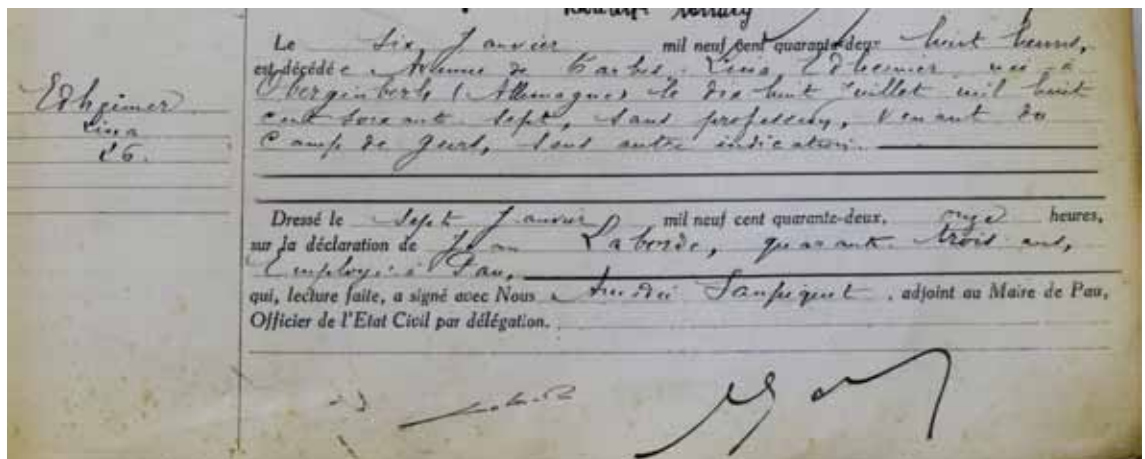 Le six Janvier mil neuf cent quarante-deux huit heures,
est décédée Avenue de Tarbes, Lina Edheimer née à
(Allemagne) le dix huit Juillet mil huit
cent soixante sept, sans profession, venant du
Camp de Gurs, sans autre indication.
Edheimer
Lina
26.
Dressé le sept Janvier mil neuf cent quarante-deux, onze heures,
sur la déclaration de Jean Laborde, quarante trois ans,
Employé à Pau,
qui, lecture faite, a signé avec Nous , adjoint au Maire de Pau,
Officier de l'Etat Civil par délégation.